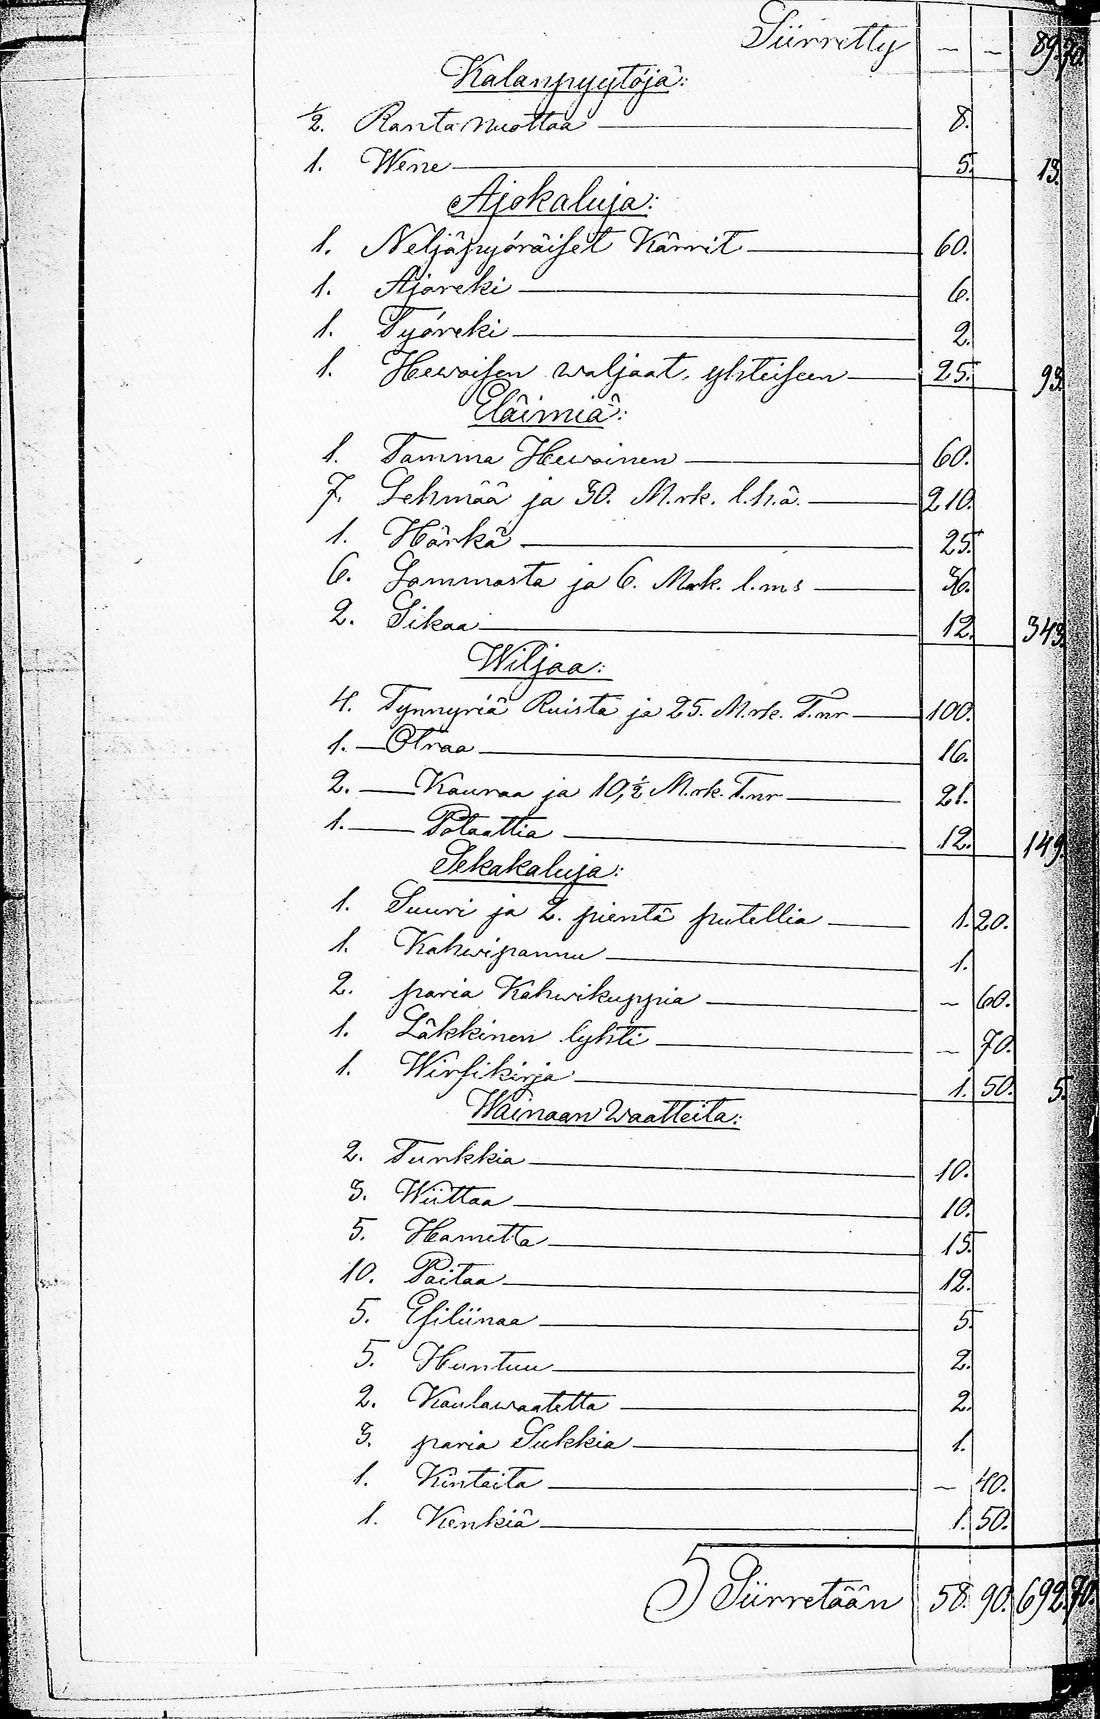 Siirretty – – 89. 70.
Kalanpyytöjä:
1/2. Ranta nuottaa 8.
1. Wene 5. 13.
Ajokaluja:
1. Neljäpyöräiset Kärrit 60.
1. Ajoreki 6.
1. Työreki 2.
1. Hewoisen waljaat, yhteiseen 25. 93.
Eläimiä:
1. Tamma Hewoinen 60.
7. Lehmää ja 30. M.rk. l.h.ä. 210.
1. Härkä 25.
6. Lammasta ja 6. Mrk. l.m.s 36.
2. Sikaa 12. 343.
Wiljaa:
4. Tynnyriä Ruista ja 25. M.rk. T.nr 100.
1. — Ohraa 16.
2. — Kauraa ja 10,1/2 M.rk. T.nr 21.
1. — Potaattia 12. 149.
Sekakaluja:
1. Suuri ja 2. pientä putellia 1. 20.
1. Kahwipannu 1.
2. paria Kahwikuppia – 60.
1. Läkkinen lyhti – 70.
1. Wirsikirja 1. 50. 5.
Wainaan Waatteita:
2. Turkkia 10.
3. Wiittaa 10.
5. Hametta 15.
10. Paitaa 12.
5. Esiliinaa 5.
5. Huntuu 2.
2. Kaulawaatetta 2.
3. paria Sukkia 1.
1. Kintaita – 40.
1. Kenkiä 1. 50.
Siirretään 58. 90. 692. 70.